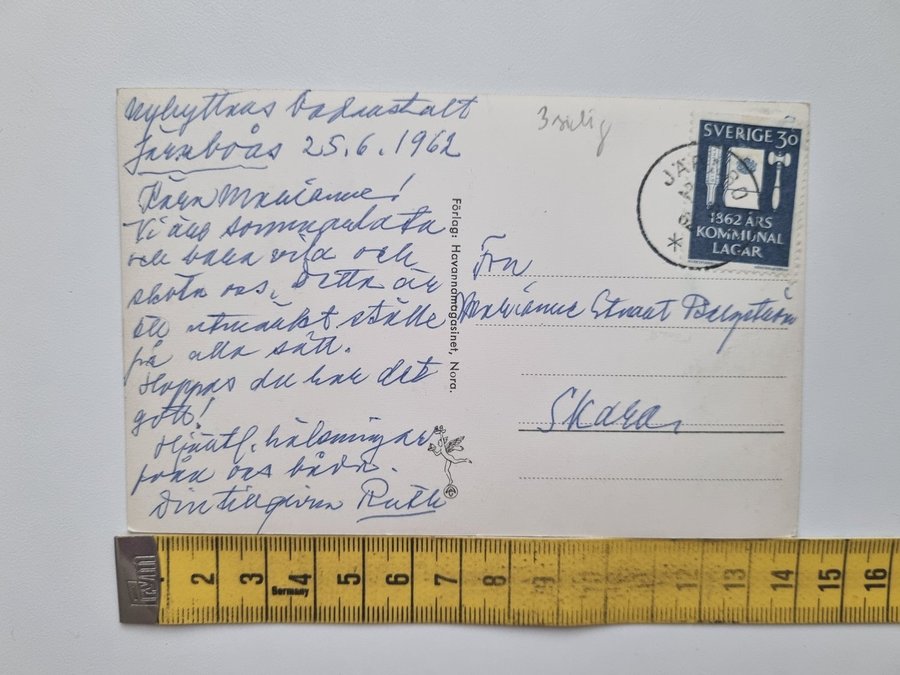 Nyhyttans Badanstalt
Järnboås 25.6.1962
Kära Marianne!
Vi äro sommarlata
och bara vila och
sköta oss. Detta är
ett utmärkt ställe
på alla sätt.
Hoppas du har det
gott!
Hjärtl. hälsningar
från oss båda.
Din tillgivna Ruth
Förlag: Havannamagasinet, Nora.
SVERIGE 30
1862 ÅRS
KOMMUNAL
LAGAR
Fru
Marianne Bergström
Skara
2 3 4 5 6 7 8 9 10 11 12 13 14 15 16
Germany